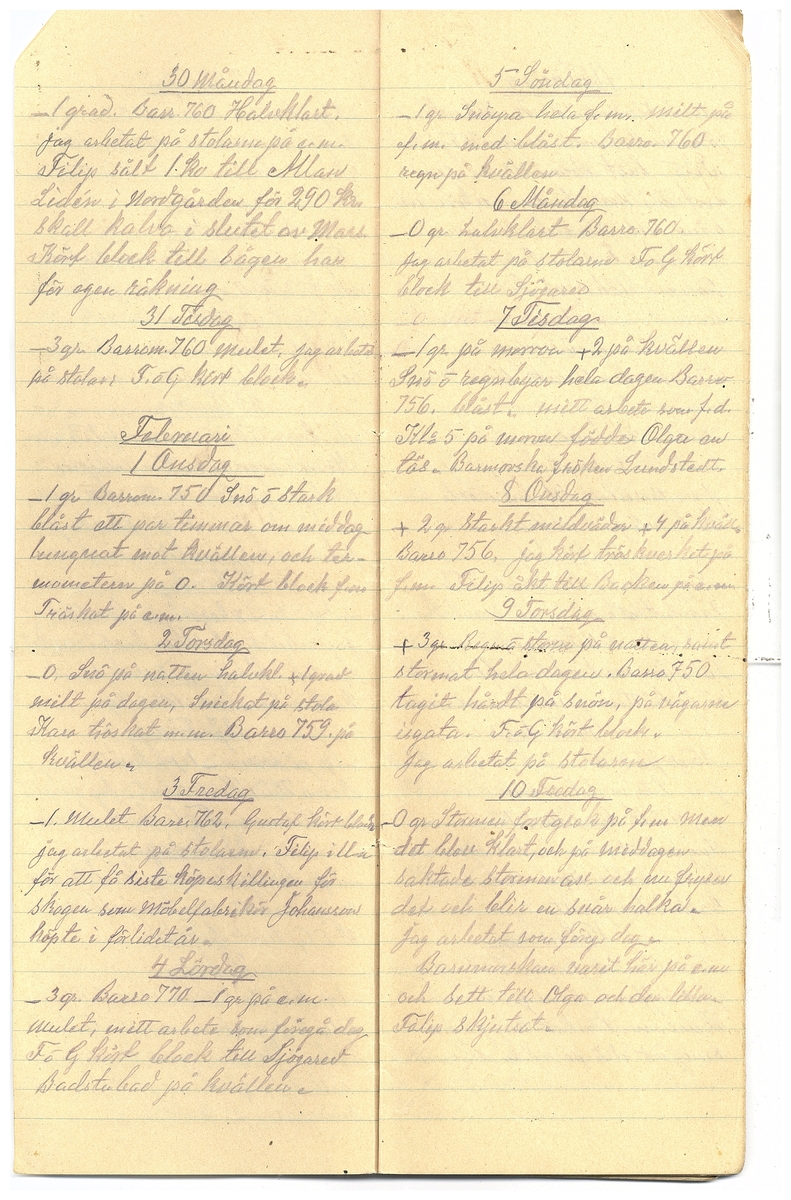 30 Måndag
– 1 grad. Barr. 760 Halvklart.
jag arbetat på stolarne på e.m.
Filip sålt 1. Ko till Allan
Lidén i Nordgården för 290 Kr.
skall kalva i slutet av Mars.
Kört block till sågen har
för egen räkning
31 Tisdag
– 3 gr. Barrom. 760 mulet, jag arbeta
på stolar. F. o G kört block.
Februari
1 Onsdag
– 1 gr Barrom. 750 Snö o stark
blåst ett par timmar om middag
lungnat mot kvällen, och ter-
mometern på 0. Kört block f.m
Tröskat på e.m.
2 Torsdag
– 0. Snö på natten halvkl. + 1 grad
milt på dagen, Snickat på stola
Karo tröskat m.m. Barro 759. på
kvällen.
3 Fredag
– 1. Mulet Barr. 762. Gustaf kört block
jag arbetat på stolarne. Filip
för att få siste köpeskillingen för
skogen som Möbelfabrikör Johansson
köpte i förlidet år.
4 Lördag
– 3 gr. Barro 770 – 1 gr på e.m.
Mulet, mitt arbete som föregå dag
F o G kört block till Sjögared
Badstubad på kvällen.
5 Söndag
– 1 gr Snöyra hela f.m. milt på
e.m. med blåst. Barro. 760
regn på kvällen
6 Måndag
– 0 gr halvklart Barro 760.
Jag arbetat på stolarne F o G kört
block till Sjögared
7 Tisdag
– 1 gr på morron + 2 på kvällen
Snö o regnbyar hela dagen Barro
756. blåst. mitt arbete som f.d.
Kl: 5 på morron födde Olga en
tös. Barmorska fröken Lundstedt.
8 Onsdag
+ 2 gr starkt mildväder + 4 på kväll.
Barro 756. jag kört tröskverket på
f.m. Filip åkt till Backen på e.m
9 Torsdag
+ 3 gr Regn o storm på natten, samt
stormat hela dagen. Barro 750
tagit hårdt på snön, på vägarne
isgata. F. o G kört block.
Jag arbetat på stolarne
10 Fredag
– 0 gr Stormen fortgick på f.m Men
det blev klart, och på middagen
saktade stormen av och nu fryser
det och blir en svår halka.
Jag arbetat som föreg. dag.
Barnmorskan varit här på e.m
och sett till Olga och den lilla.
Filip skjutsat.